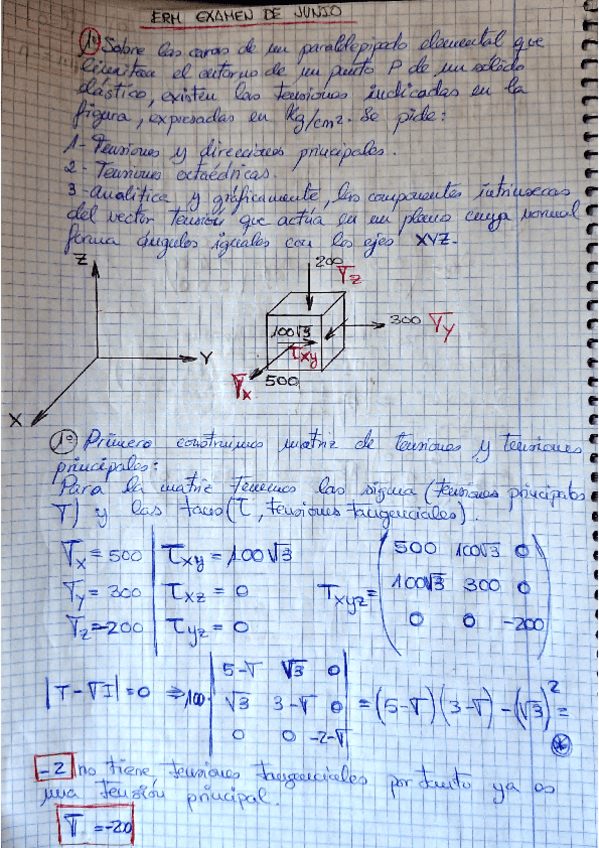 ERM EXAMEN DE JUNIO
1º Sobre las caras de un paralelepípedo elemental que
limitan el entorno de un punto P de un sólido
elástico, existen las tensiones indicadas en la
figura, expresadas en Kg/cm². Se pide:
1- Tensiones y direcciones principales.
2- Tensiones octaédricas.
3- Analítica y gráficamente, las componentes intrínsecas
del vector tensión que actúa en un plano cuya normal
forma ángulos iguales con los ejes XYZ.
Z
Y
X
200
σz
300 σy
100√3
τxy
σx
500
1º Primero construimos matriz de tensiones y tensiones
principales:
Para la matriz tenemos las sigma (tensiones principales
σ) y las taos (τ, tensiones tangenciales).
σx = 500 | τxy = 100√3
σy = 300 | τxz = 0
σz = -200 | τyz = 0
Txyz =
500 100√3 0
100√3 300 0
0 0 -200
|T - σI| = 0 ⇒ 100·
5-σ √3 0
√3 3-σ 0
0 0 -2-σ
= (5-σ)(3-σ) - (√3)² =
*
-2 no tiene tensiones tangenciales por tanto ya es
una tensión principal.
σ = -20